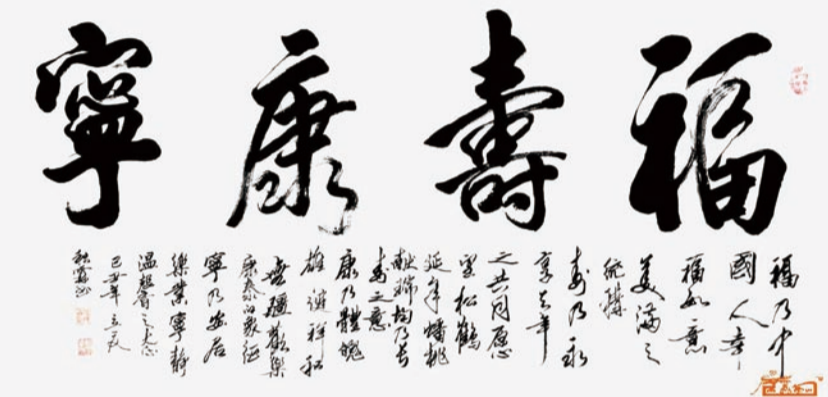 福壽康寧
福乃中
國人幸
福如意
美滿之
統稱
壽乃永
享天年
之共同愿
望松鶴
延年蟠桃
獻瑞均乃長
壽之意
康乃體魄
雄健祥和
無疆歡樂
康泰的象征
寧乃安居
樂業寧靜
溫馨之
己丑年立夏